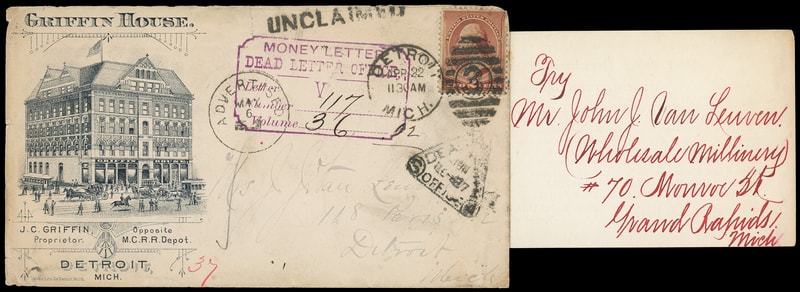 GRIFFIN HOUSE.
J. C. GRIFFIN,
Proprietor.
Opposite
M.C.R.R. Depot.
DETROIT,
MICH.
37
UNCLAIMED
MONEY LETTER
DEAD LETTER OFFICE
Letter
V
Number 117
Volume 36
62
ADVERTISED
MAY
6
DETROIT
22
1130AM
MICH.
3
DEAD
OFFICE
J. Van
Detroit
Mich
Try
Mr. John J. Van Leuven.
(Wholesale Millinery)
# 70. Monroe St.
Grand Rapids.
Mich